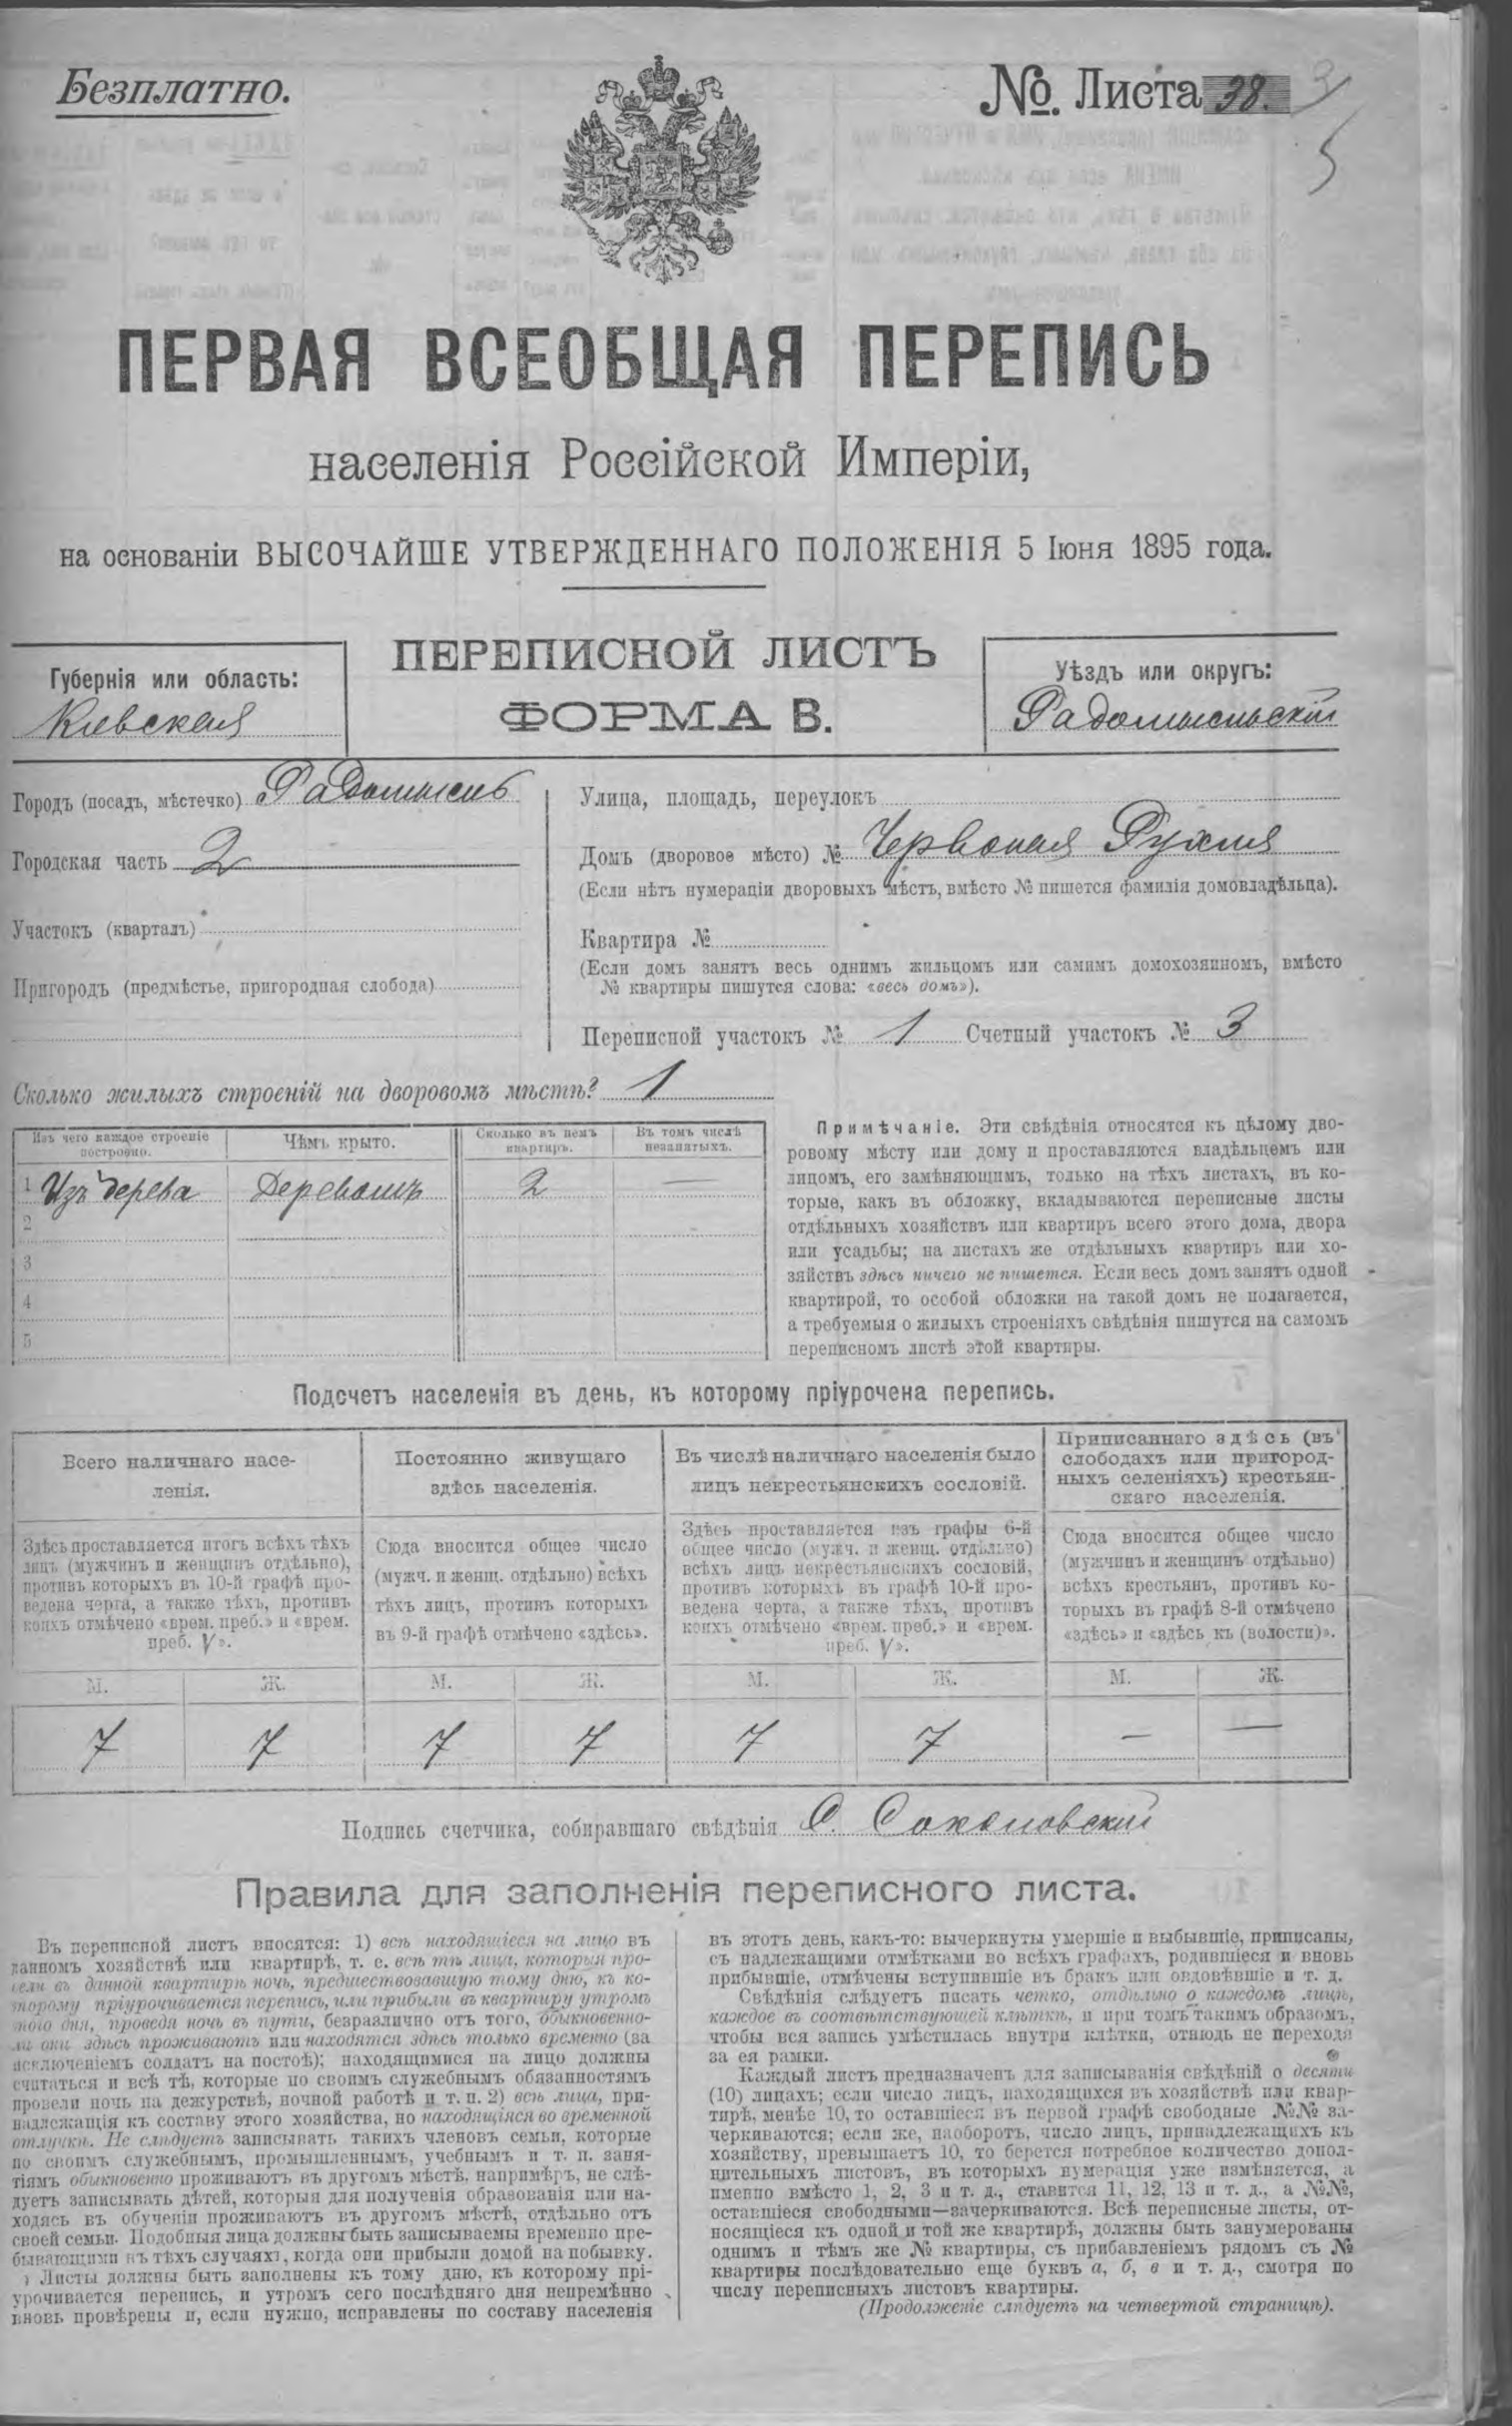 Безплатно.
№ Листа 38.
ПЕРВАЯ ВСЕОБЩАЯ ПЕРЕПИСЬ
населенія Россійской Имперіи,
на основаніи ВЫСОЧАЙШЕ УТВЕРЖДЕННАГО ПОЛОЖЕНІЯ 5 Іюня 1895 года.
Губернія или область:
Кіевская
ПЕРЕПИСНОЙ ЛИСТЪ
ФОРМА В.
Уѣздъ или округъ:
Радомысльскій
Городъ (посадъ, мѣстечко) Радомысль
Городская часть 2
Участокъ (кварталъ)
Пригородъ (предмѣстье, пригородная слобода)
Улица, площадь, переулокъ
Домъ (дворовое мѣсто) № Червоная Рухля
(Если нѣтъ нумераціи дворовыхъ мѣстъ, вмѣсто № пишется фамилія домовладѣльца).
Квартира №
(Если домъ занятъ весь однимъ жильцомъ или самимъ домохозяиномъ, вмѣсто
№ квартиры пишутся слова: «весь домъ»).
Переписной участокъ № 1 Счетный участокъ № 3
Сколько жилыхъ строеній на дворовомъ мѣстѣ? 1
Изъ чего каждое строеніе
построено.
Чѣмъ крыто.
Сколько въ немъ
квартиръ.
Въ томъ числѣ
незанятыхъ.
1 Изъ дерева Деревомъ 2 —
2
3
4
5
Примѣчаніе. Эти свѣдѣнія относятся къ цѣлому дво-
ровому мѣсту или дому и проставляются владѣльцемъ или
лицомъ, его замѣняющимъ, только на тѣхъ листахъ, въ ко-
торые, какъ въ обложку, вкладываются переписные листы
отдѣльныхъ хозяйствъ или квартиръ всего этого дома, двора
или усадьбы; на листахъ же отдѣльныхъ квартиръ или хо-
зяйствъ здѣсь ничего не пишется. Если весь домъ занятъ одной
квартирой, то особой обложки на такой домъ не полагается,
а требуемыя о жилыхъ строеніяхъ свѣдѣнія пишутся на самомъ
переписномъ листѣ этой квартиры.
Подсчетъ населенія въ день, къ которому пріурочена перепись.
Всего наличнаго насе-
ленія.
Постоянно живущаго
здѣсь населенія.
Въ числѣ наличнаго населенія было
лицъ некрестьянскихъ сословій.
Приписаннаго здѣсь (въ
слободахъ или пригород-
ныхъ селеніяхъ) крестьян-
скаго населенія.
Здѣсь проставляется итогъ всѣхъ тѣхъ
лицъ (мужчинъ и женщинъ отдѣльно),
противъ которыхъ въ 10-й графѣ про-
ведена черта, а также тѣхъ, противъ
коихъ отмѣчено «врем. преб.» и «врем.
преб. V».
Сюда вносится общее число
(мужч. и женщ. отдѣльно) всѣхъ
тѣхъ лицъ, противъ которыхъ
въ 9-й графѣ отмѣчено «здѣсь».
Здѣсь проставляется изъ графы 6-й
общее число (мужч. и женщ. отдѣльно)
всѣхъ лицъ некрестьянскихъ сословій,
противъ которыхъ въ графѣ 10-й про-
ведена черта, а также тѣхъ, противъ
коихъ отмѣчено «врем. преб.» и «врем.
преб. V».
Сюда вносится общее число
(мужчинъ и женщинъ отдѣльно)
всѣхъ крестьянъ, противъ ко-
торыхъ въ графѣ 8-й отмѣчено
«здѣсь» и «здѣсь къ (волости)».
М. Ж. М. Ж. М. Ж. М. Ж.
7 7 7 7 7 7 — —
Подпись счетчика, собиравшаго свѣдѣнія С. Соколовскій
Правила для заполненія переписного листа.
Въ переписной листъ вносятся: 1) всѣ находящіеся на лицо въ
данномъ хозяйствѣ или квартирѣ, т. е. всѣ тѣ лица, которыя про-
вели въ данной квартирѣ ночь, предшествовавшую тому дню, къ ко-
торому пріурочивается перепись, или прибыли въ квартиру утромъ
того дня, проведя ночь въ пути, безразлично отъ того, обыкновенно-
ли они здѣсь проживаютъ или находятся здѣсь только временно (за
исключеніемъ солдатъ на постоѣ); находящимися на лицо должны
считаться и всѣ тѣ, которые по своимъ служебнымъ обязанностямъ
провели ночь на дежурствѣ, ночной работѣ и т. п. 2) всѣ лица, при-
надлежащія къ составу этого хозяйства, но находящіяся во временной
отлучкѣ. Не слѣдуетъ записывать такихъ членовъ семьи, которые
по своимъ служебнымъ, промышленнымъ, учебнымъ и т. п. заня-
тіямъ обыкновенно проживаютъ въ другомъ мѣстѣ, напримѣръ, не слѣ-
дуетъ записывать дѣтей, которыя для полученія образованія или на-
ходясь въ обученіи проживаютъ въ другомъ мѣстѣ, отдѣльно отъ
своей семьи. Подобныя лица должны быть записываемы временно пре-
бывающими въ тѣхъ случаяхъ, когда они прибыли домой на побывку.
Листы должны быть заполнены къ тому дню, къ которому прі-
урочивается перепись, и утромъ сего послѣдняго дня непремѣнно
вновь провѣрены и, если нужно, исправлены по составу населенія
въ этотъ день, какъ-то: вычеркнуты умершіе и выбывшіе, приписаны,
съ надлежащими отмѣтками во всѣхъ графахъ, родившіеся и вновь
прибывшіе, отмѣчены вступившіе въ бракъ или овдовѣвшіе и т. д.
Свѣдѣнія слѣдуетъ писать четко, отдѣльно о каждомъ лицѣ,
каждое въ соотвѣтствующей клѣткѣ, и при томъ такимъ образомъ,
чтобы вся запись умѣстилась внутри клѣтки, отнюдь не переходя
за ея рамки.
Каждый листъ предназначенъ для записыванія свѣдѣній о десяти
(10) лицахъ; если число лицъ, находящихся въ хозяйствѣ или квар-
тирѣ, менѣе 10, то оставшіеся въ первой графѣ свободные №№ за-
черкиваются; если же, наоборотъ, число лицъ, принадлежащихъ къ
хозяйству, превышаетъ 10, то берется потребное количество допол-
нительныхъ листовъ, въ которыхъ нумерація уже измѣняется, а
именно вмѣсто 1, 2, 3 и т. д., ставится 11, 12, 13 и т. д., а №№,
оставшіеся свободными—зачеркиваются. Всѣ переписные листы, от-
носящіеся къ одной и той же квартирѣ, должны быть занумерованы
однимъ и тѣмъ же № квартиры, съ прибавленіемъ рядомъ съ №
квартиры послѣдовательно еще буквъ а, б, в и т. д., смотря по
числу переписныхъ листовъ квартиры.
(Продолженіе слѣдуетъ на четвертой страницѣ).